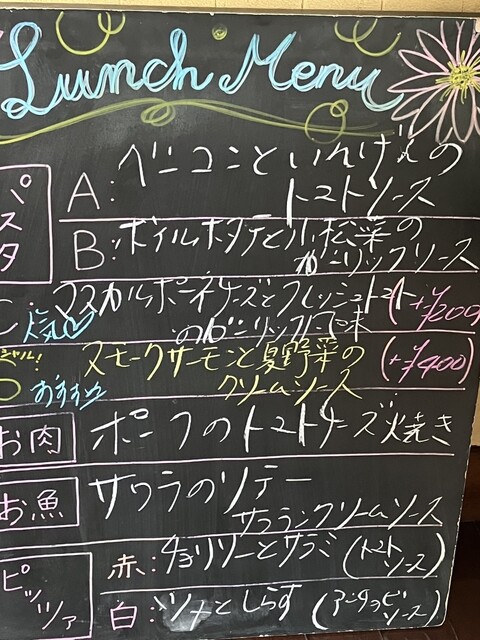 Lunch Menu
パスタ
A: ベーコンといんげんの
トマトソース
B: ボイルホタテと小松菜の
ガーリックソース
C: マスカルポーネチーズとフレッシュトマト (+¥200)
人気 のガーリック風味
スモークサーモンと夏野菜の (+¥400)
おすすめ クリームソース
お肉 ポークのトマトチーズ焼き
お魚 サワラのソテー
サフランクリームソース
ピッツァ
赤: チョリソーとサラミ (トマト
ソース)
白: ツナとしらす (アンチョビ
ソース)